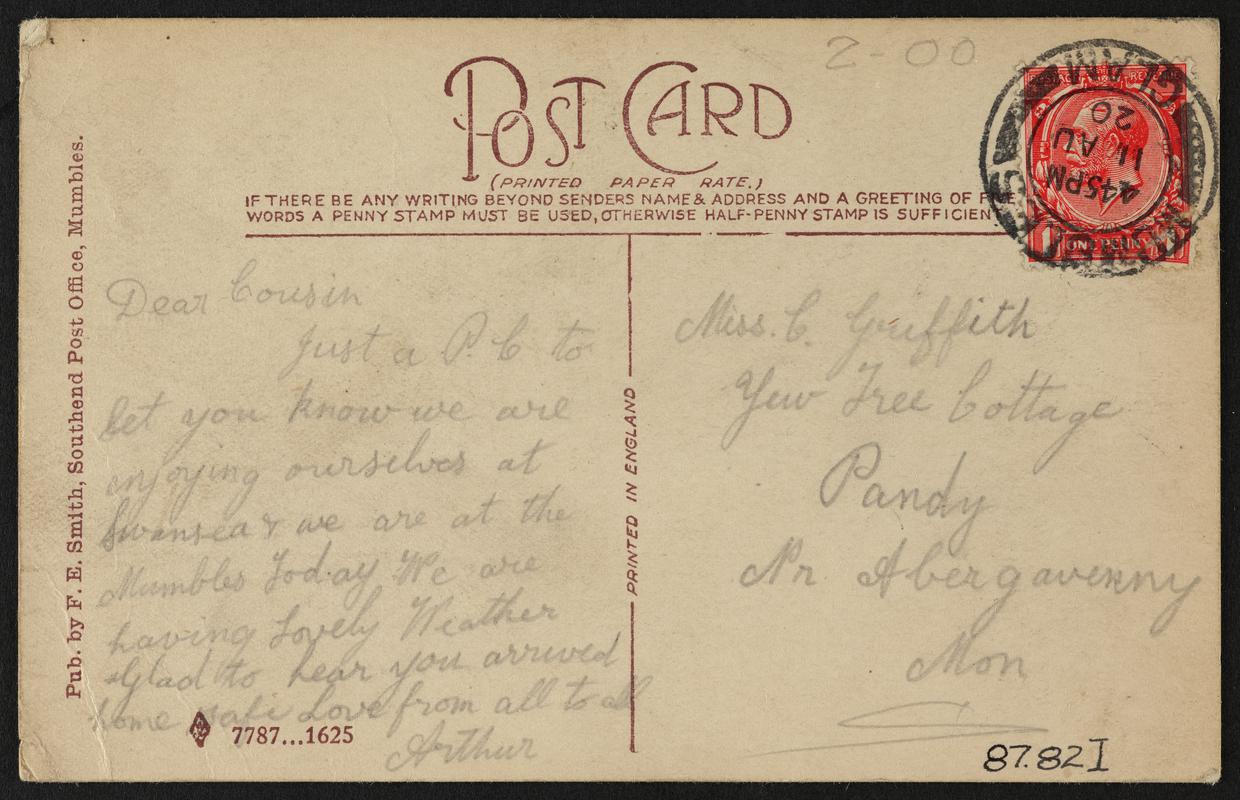 2-00
POST CARD
(PRINTED PAPER RATE.)
IF THERE BE ANY WRITING BEYOND SENDERS NAME & ADDRESS AND A GREETING OF FIVE
WORDS A PENNY STAMP MUST BE USED, OTHERWISE HALF-PENNY STAMP IS SUFFICIENT
GLAM
4.45PM
11 AU
20
ONE PENNY
Pub. by F. E. Smith, Southend Post Office, Mumbles.
Dear Cousin
Just a P.C to
let you know we are
enjoying ourselves at
Swansea & we are at the
Mumbles Today We are
having Lovely Weather
Glad to hear you arrived
home safe Love from all to all
Arthur
7787...1625
PRINTED IN ENGLAND
Miss. C. Griffith
Yew Tree Cottage
Pandy
Nr Abergavenny
Mon
87.82I